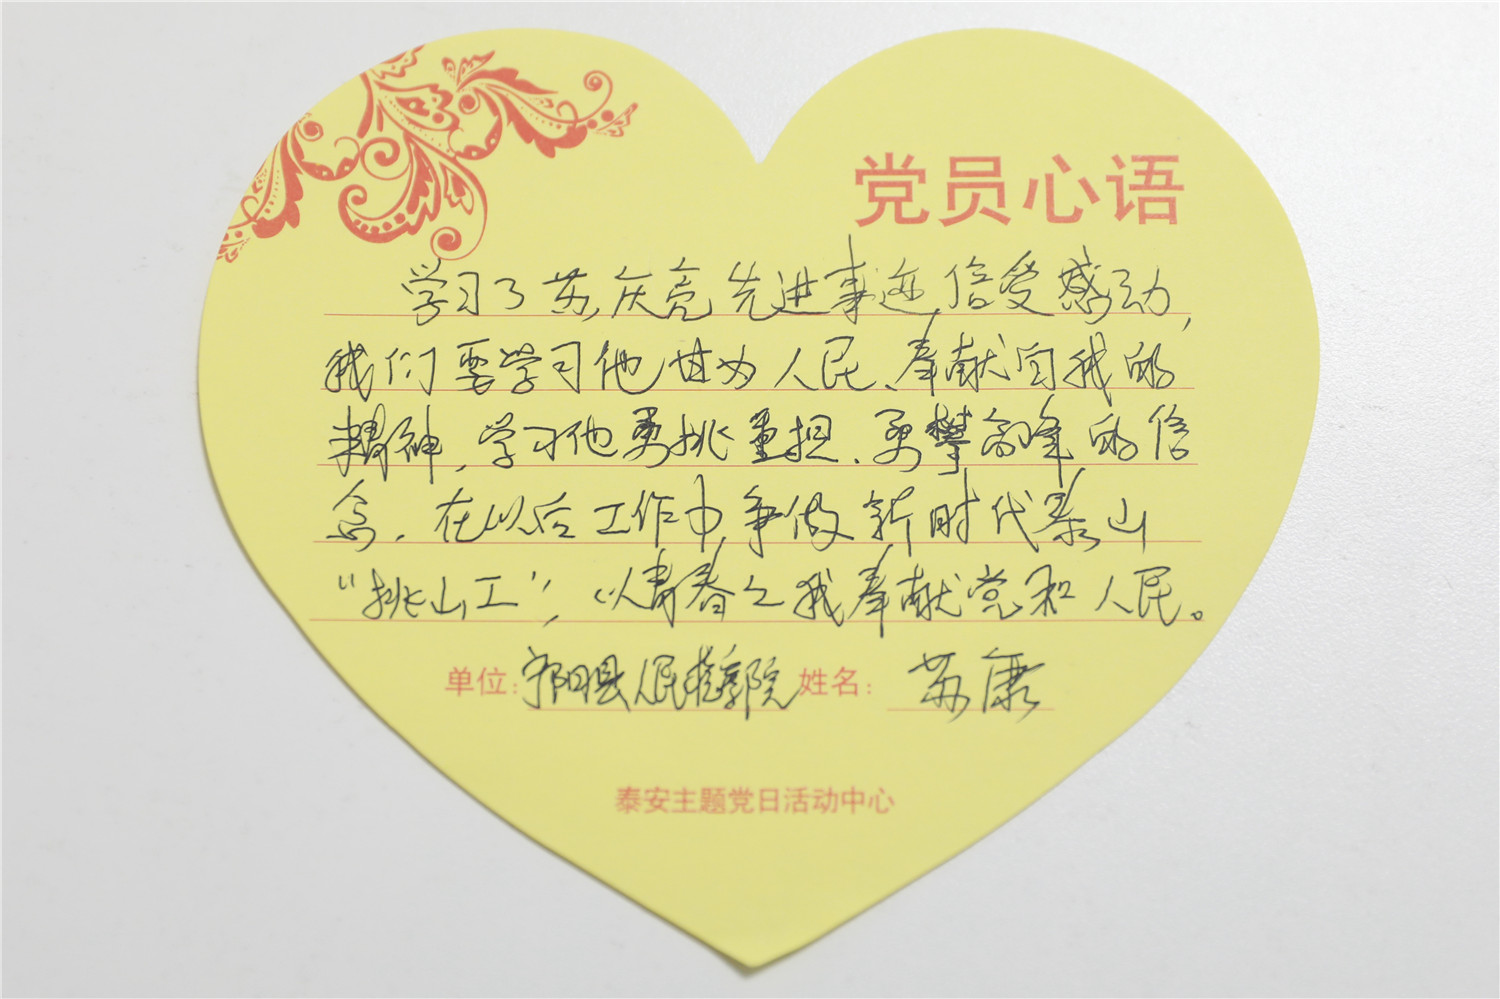 党员心语
学习了苏庆亮先进事迹,倍受感动,
我们要学习他甘为人民、奉献自我的
精神,学习他勇挑重担、勇攀高峰的信
念,在以后工作中,争做新时代泰山
“挑山工”,以青春之我奉献党和人民。
单位:祁阳县人民检察院 姓名:苏康
泰安主题党日活动中心